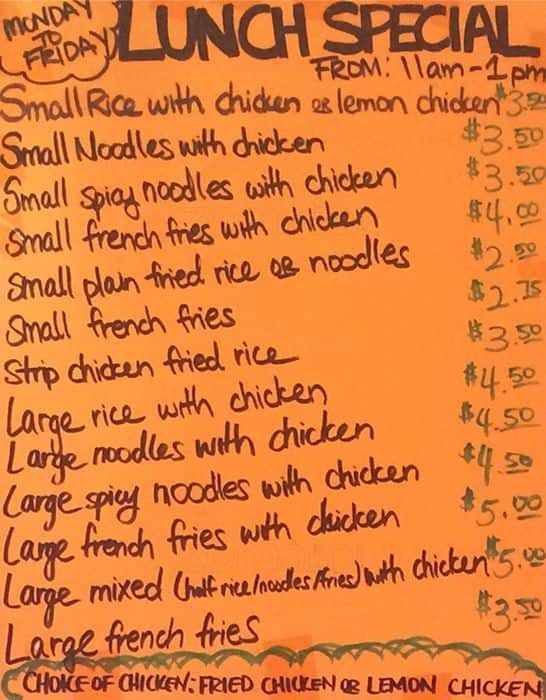 MONDAY
TO
FRIDAY
LUNCH SPECIAL
FROM: 11am-1pm
Small Rice with chicken OR lemon chicken $3.50
Small Noodles with chicken $3.50
Small spicy noodles with chicken $3.50
Small french fries with chicken $4.00
Small plain fried rice OR noodles $2.50
Small french fries $2.75
Strip chicken fried rice $3.50
Large rice with chicken $4.50
Large noodles with chicken $4.50
Large spicy noodles with chicken $4.50
Large french fries with chicken $5.00
Large mixed (half rice/noodles/fries) with chicken $5.00
Large french fries $3.50
CHOICE OF CHICKEN: FRIED CHICKEN OR LEMON CHICKEN